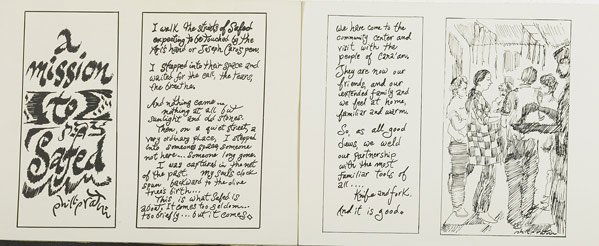 a
mission
to
צפת
Safed
I walk the streets of Safed
expecting to be touched by the
Ari's hand or Joseph Caro's pen.
I stepped into their space and
waited for the call, the tears,
the breathe.
And nothing came...
nothing at all but
sunlight and old stones.
Then, on a quiet street, a
very ordinary place, I stepped
into someone's space, someone
not here... Someone long gone.
I was captured in the net
of the past. My soul's clock
span backward to the olive
tree's birth...
This is what Safed is
about. It comes too seldom...
too briefly... but it comes.
We have come to the
community center and
visit with the
people of Cana'an.
They are now our
friends, and our
extended family and
we feel at home,
familiar and warm.
So, as all good
Jews, we weld
our partnership
with the most
familiar tools of
all....
Knife and fork.
And it is good.